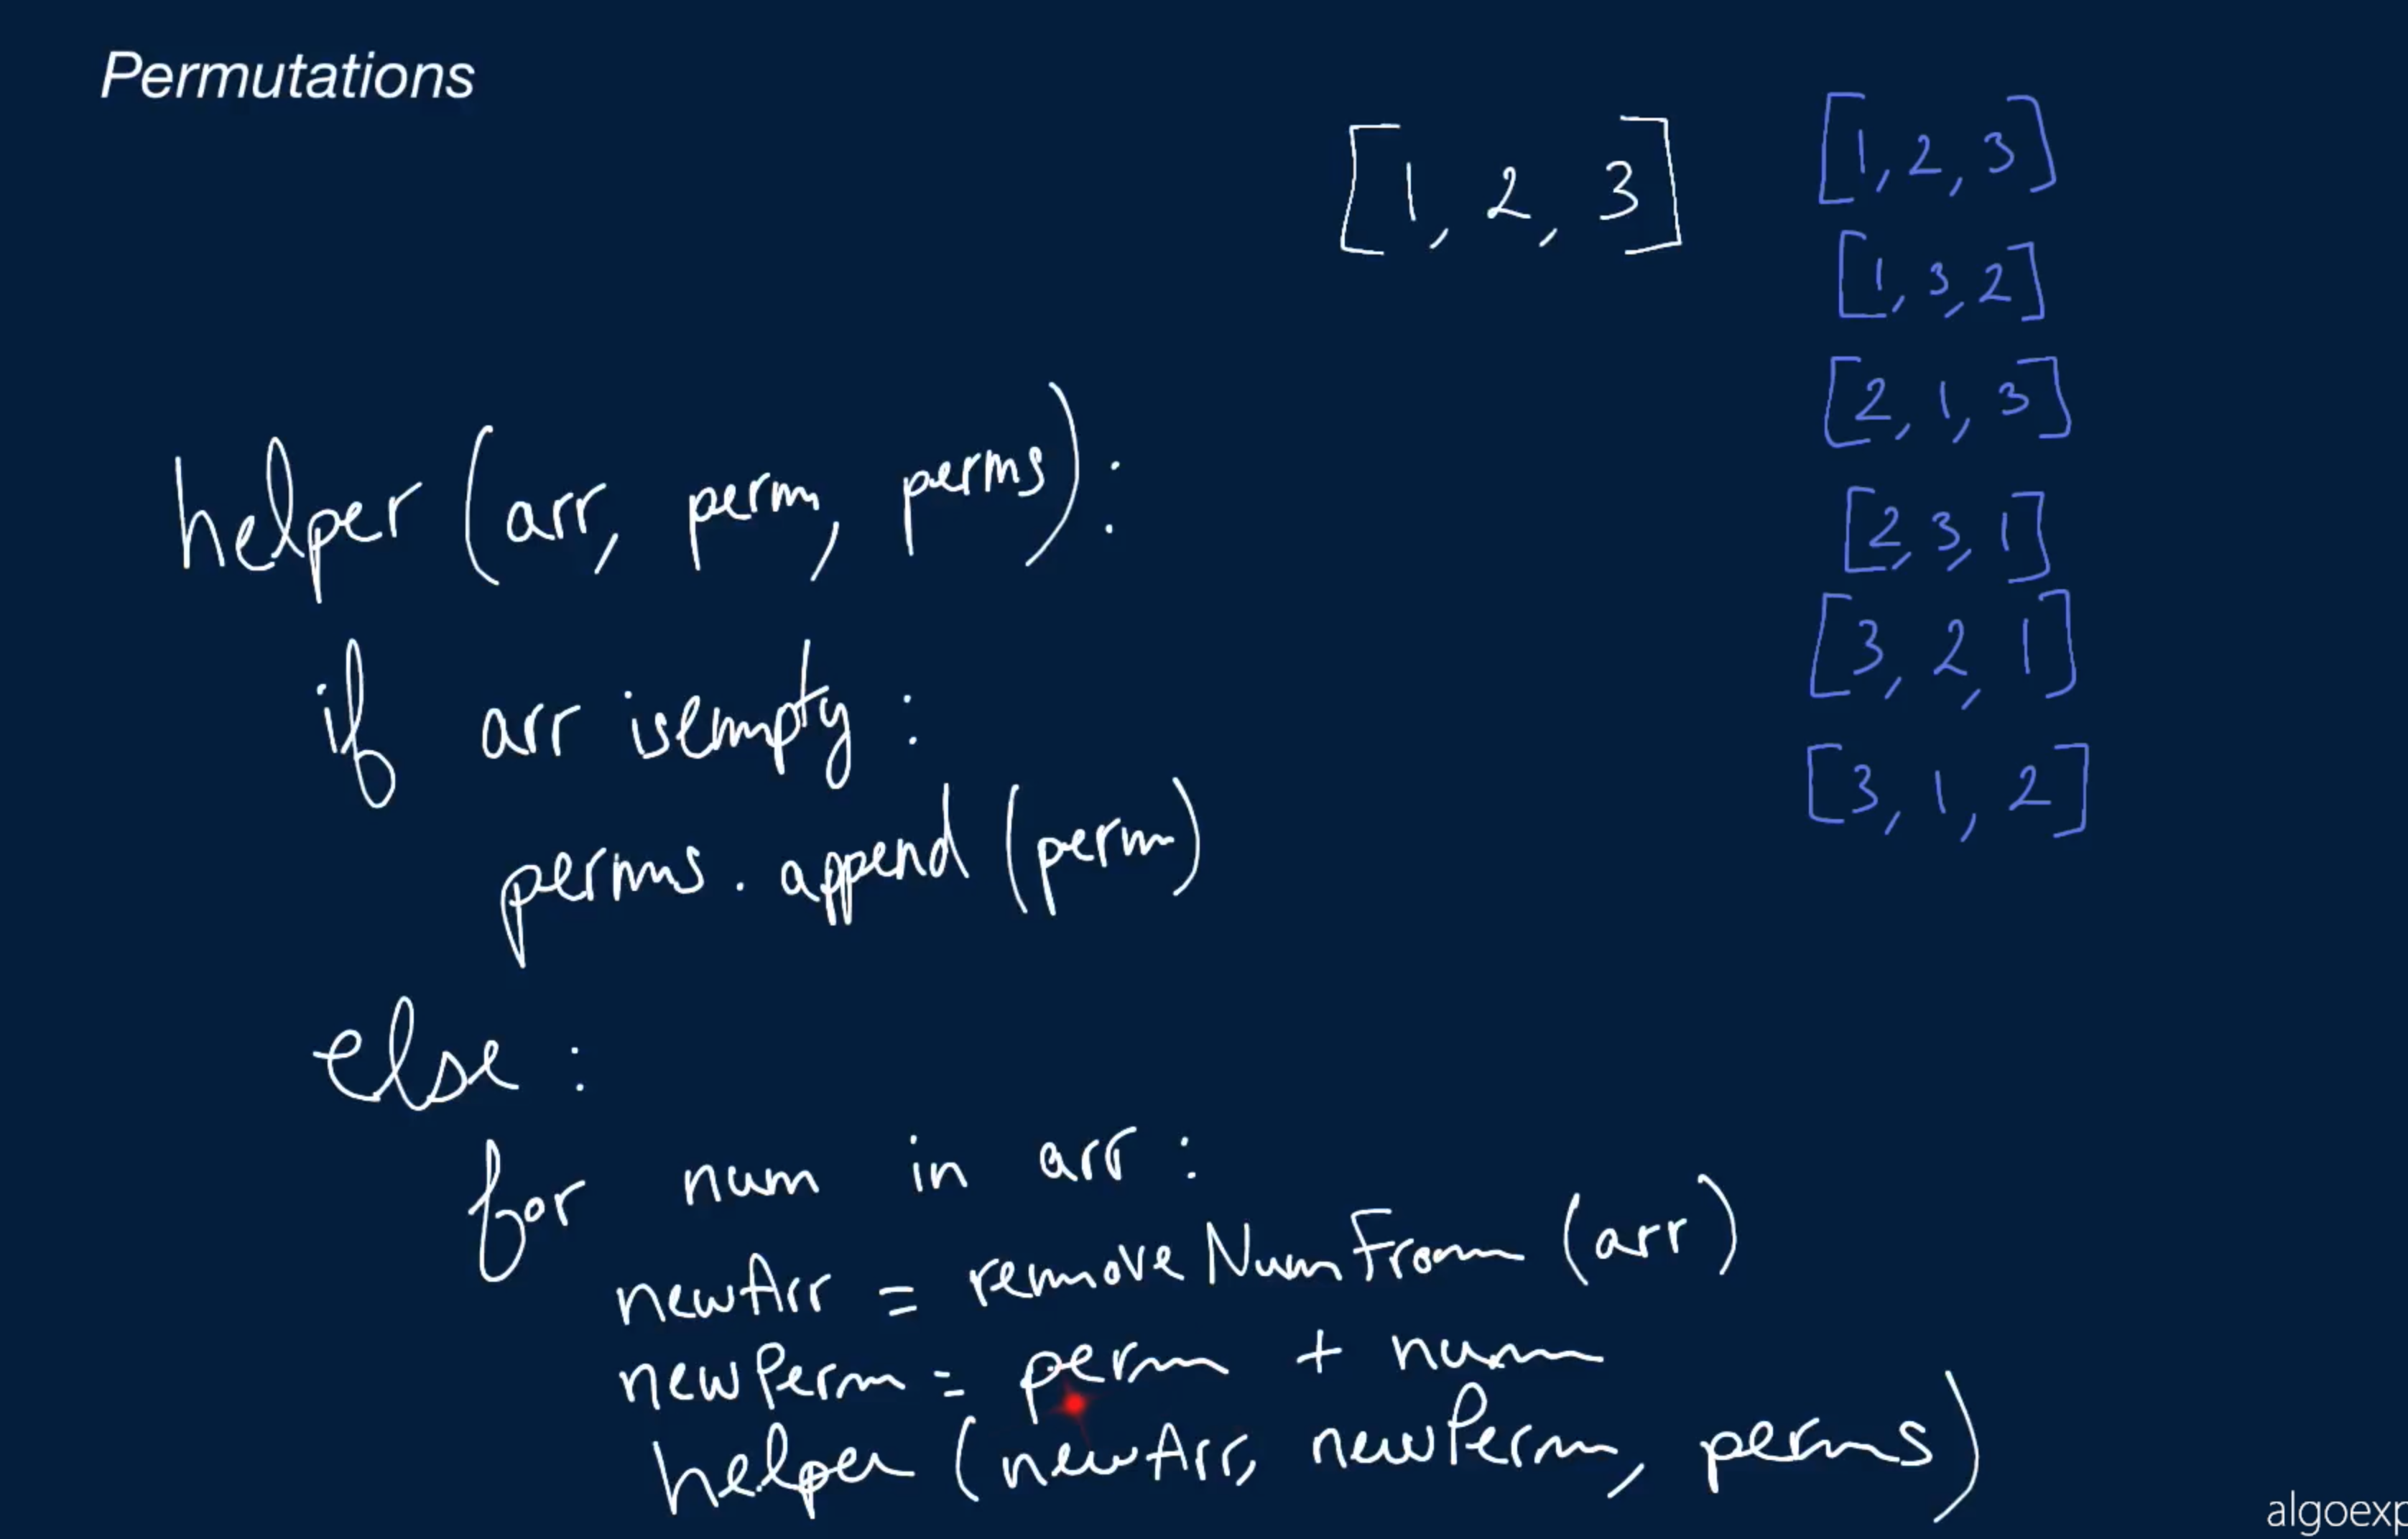 Permutations
[1, 2, 3]
[1, 2, 3]
[1, 3, 2]
[2, 1, 3]
[2, 3, 1]
[3, 2, 1]
[3, 1, 2]
helper (arr, perm, perms):
if arr isempty:
perms.append(perm)
else:
for num in arr:
newArr = removeNumFrom(arr)
newPerm = perm + num
helper (newArr, newPerm, perms)
algoexp